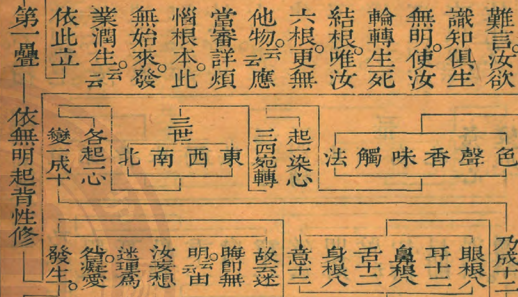 難言汝欲
識知俱生
無明使汝
輪轉生死
結根唯汝
六根更無
他物云應
當審詳煩
惱根本此
無始來發
業潤生云云
依此立
第一疊
依無明起背性修
色聲香味觸法
起一染心
三四宛轉
三世
東西南北
各起一心
變成十
乃成十
眼根八
耳十二
鼻根八
舌十二
身根八
意十二
故云迷
晦即無
明云由
汝妄想
迷理爲
咎癡愛
發生